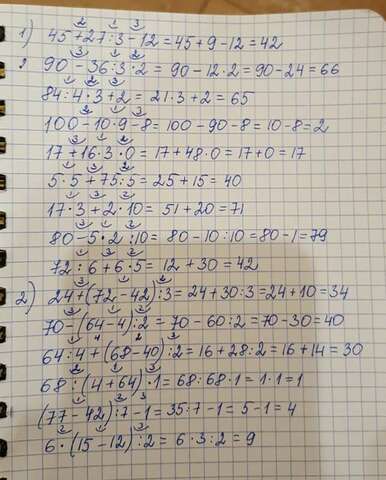 1) 45 + 27 : 3 - 12 = 45 + 9 - 12 = 42
2. 90 - 36 : 3 · 2 = 90 - 12 · 2 = 90 - 24 = 66
84 : 4 · 3 + 2 = 21 · 3 + 2 = 65
100 - 10 · 9 - 8 = 100 - 90 - 8 = 10 - 8 = 2
17 + 16 · 3 · 0 = 17 + 48 · 0 = 17 + 0 = 17
5 · 5 + 75 : 5 = 25 + 15 = 40
17 · 3 + 2 · 10 = 51 + 20 = 71
80 - 5 · 2 : 10 = 80 - 10 : 10 = 80 - 1 = 79
72 : 6 + 6 · 5 = 12 + 30 = 42
2) 24 + (72 - 42) : 3 = 24 + 30 : 3 = 24 + 10 = 34
70 - (64 - 4) : 2 = 70 - 60 : 2 = 70 - 30 = 40
64 : 4 + (68 - 40) : 2 = 16 + 28 : 2 = 16 + 14 = 30
68 : (4 + 64) · 1 = 68 : 68 · 1 = 1 · 1 = 1
(77 - 42) : 7 - 1 = 35 : 7 - 1 = 5 - 1 = 4
6 · (15 - 12) : 2 = 6 · 3 : 2 = 9